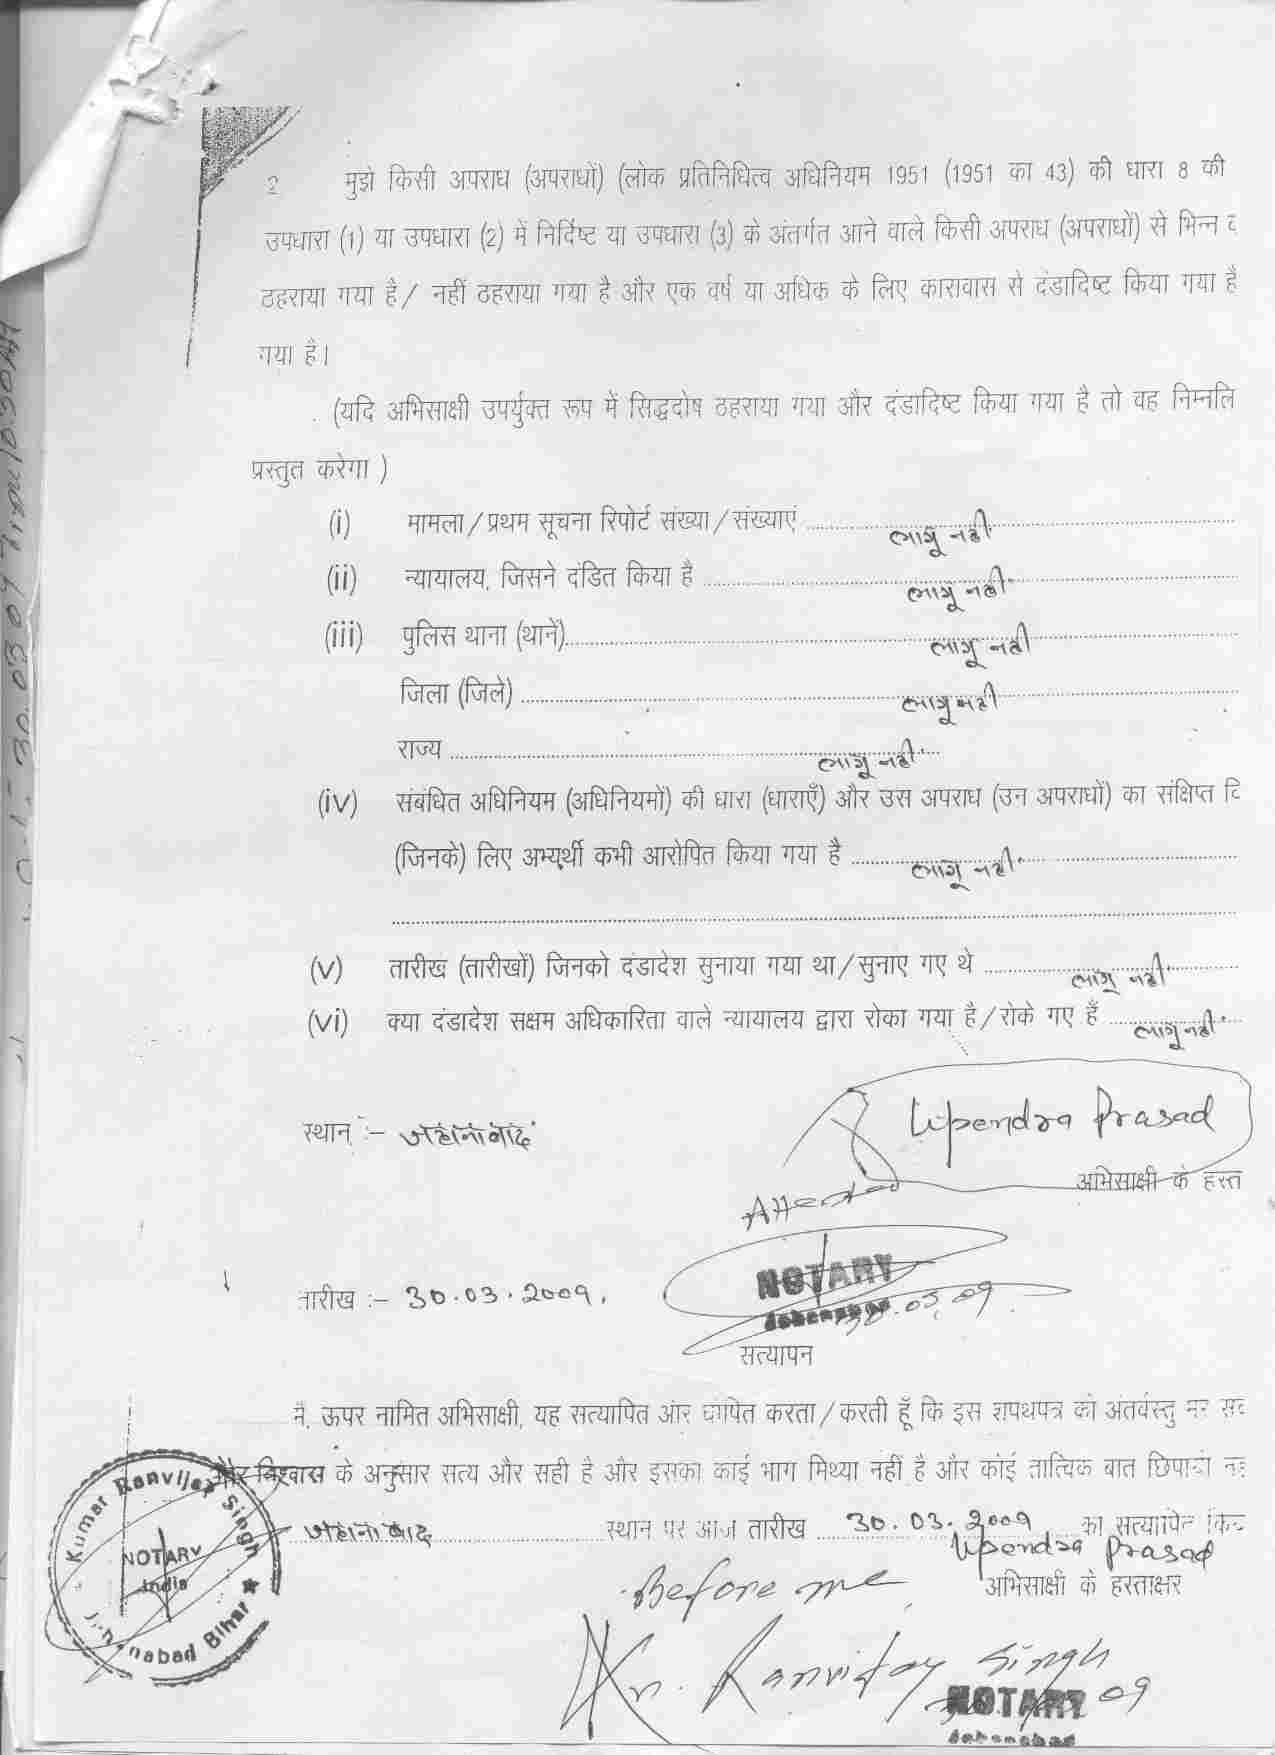 2 मुझे किसी अपराध (अपराधों) (लोक प्रतिनिधित्व अधिनियम 1951 (1951 का 43) की धारा 8 की
उपधारा (1) या उपधारा (2) में निर्दिष्ट या उपधारा (3) के अंतर्गत आने वाले किसी अपराध (अपराधों) से भिन्न
ठहराया गया है/ नहीं ठहराया गया है और एक वर्ष या अधिक के लिए कारावास से दंडादिष्ट किया गया है
गया है।
(यदि अभिसाक्षी उपर्युक्त रूप में सिद्धदोष ठहराया गया और दंडादिष्ट किया गया है तो वह निम्नलि
प्रस्तुत करेगा )
(i) मामला/प्रथम सूचना रिपोर्ट संख्या/संख्याएं लागू नही
(ii) न्यायालय, जिसने दंडित किया है लागू नही
(iii) पुलिस थाना (थानें) लागू नही
जिला (जिले) लागू नही
राज्य लागू नही
(iv) संबंधित अधिनियम (अधिनियमों) की धारा (धाराएँ) और उस अपराध (उन अपराधों) का संक्षिप्त
(जिनके) लिए अभ्यर्थी कभी आरोपित किया गया है लागू नही
(v) तारीख (तारीखों) जिनको दंडादेश सुनाया गया था/सुनाए गए थे लागू नही
(vi) क्या दंडादेश सक्षम अधिकारिता वाले न्यायालय द्वारा रोका गया है/रोके गए हैं लागू नही
Upendra Prasad
स्थान :- जहानाबाद
अभिसाक्षी के हस्त
Attested
NOTARY
Jehanabad 30.03.09
तारीख :- 30.03.2009.
सत्यापन
मैं, ऊपर नामित अभिसाक्षी, यह सत्यापित और घोषित करता/करती हूँ कि इस शपथपत्र की अंतर्वस्तु मेरे
और विश्वास के अनुसार सत्य और सही है और इसका कोई भाग मिथ्या नहीं है और कोई तात्विक बात छिपायी
जहानाबाद स्थान पर आज तारीख 30.03.2009 को सत्यापित
Upendra Prasad
अभिसाक्षी के हस्ताक्षर
Before me
Kr. Ranvijay Singh
NOTARY
Jehanabad
Kumar Ranvijay Singh
NOTARY
India
Jehanabad Bihar